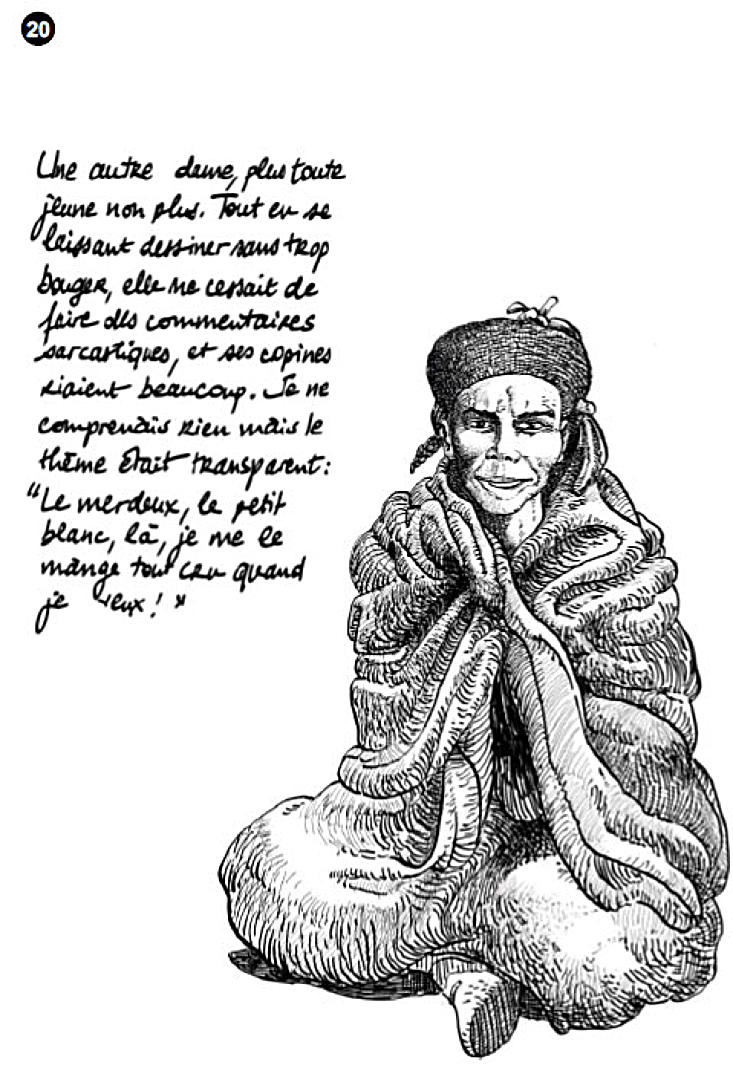 20
Une autre dame, plus toute
jeune non plus. Tout en se
laissant dessiner sans trop
bouger, elle ne cessait de
faire des commentaires
sarcastiques, et ses copines
riaient beaucoup. Je ne
comprenais rien mais le
thème était transparent :
"Le merdeux, le petit
blanc, là, je me le
mange tout cru quand
je veux ! "